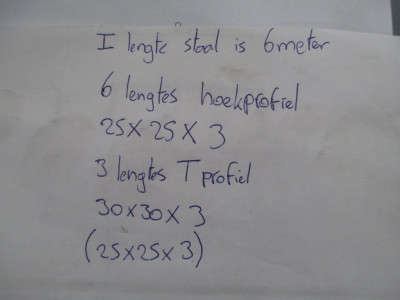 I lengte staal is 6 meter
6 lengtes hoekprofiel
25 x 25 x 3
3 lengtes T profiel
30 x 30 x 3
(25 x 25 x 3)